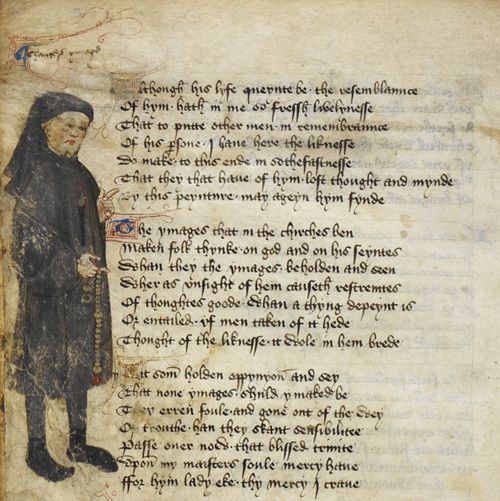 Chaucers ymage
Although his lyfe queynte be · the resemblaunce
Of hym · hath in me so fressh lyvelynesse
That to putte other men in remembraunce
Of his ꝑsone · I have here the liknesse
Do make · to this ende in sothefastnesse
That they that have of hym · loft thought and mynde
By this peynture · may ageyn hym fynde
The ymages that in the chirches ben
Maken folk thynke · on god and on his seyntes
Whan they the ymages · beholden and seen
Wher as unsight of hem causeth restreintes
Of thoughtes goode · whan a thyng depeynt is
Or entailed · yf men taken of it hede
Thought of the liknesse · it wole in hem brede
Yit som holden oppynyon and sey
That none ymages · shuld ymaked be
They erren foule · and gone out of the wey
Of trouthe · han they skant sensibilitee
Passe over nowe · that blissed trinite
Upon my maisters soule mercy have
ffor hym lady eke · thy mercy I crave